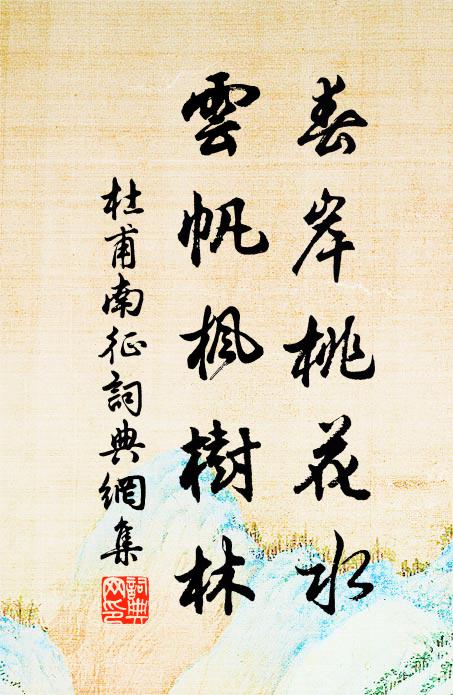 春岸桃花水
雲帆楓樹林
杜甫南征詞典網集
詞典網印